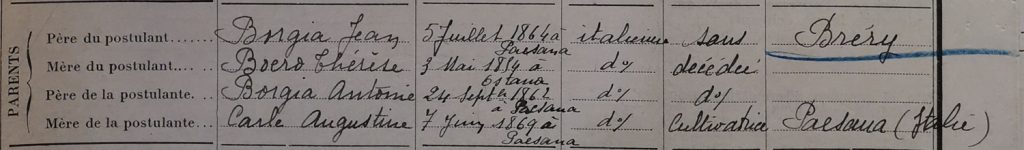 PARENTS
Père du postulant....... Borgia Jean 5 Juillet 1864 à Paesana italienne sans Bréry
Mère du postulant.... Boero Thérèse 3 Mai 1874 à Ostana do/ décédée
Père de la postulante... Borgia Antoine 24 Septe 1862 à Paesana do/ do/
Mère de la postulante.. Carle Augustine 7 Juin 1869 à Paesana do/ Cultivatrice Paesana (Italie)